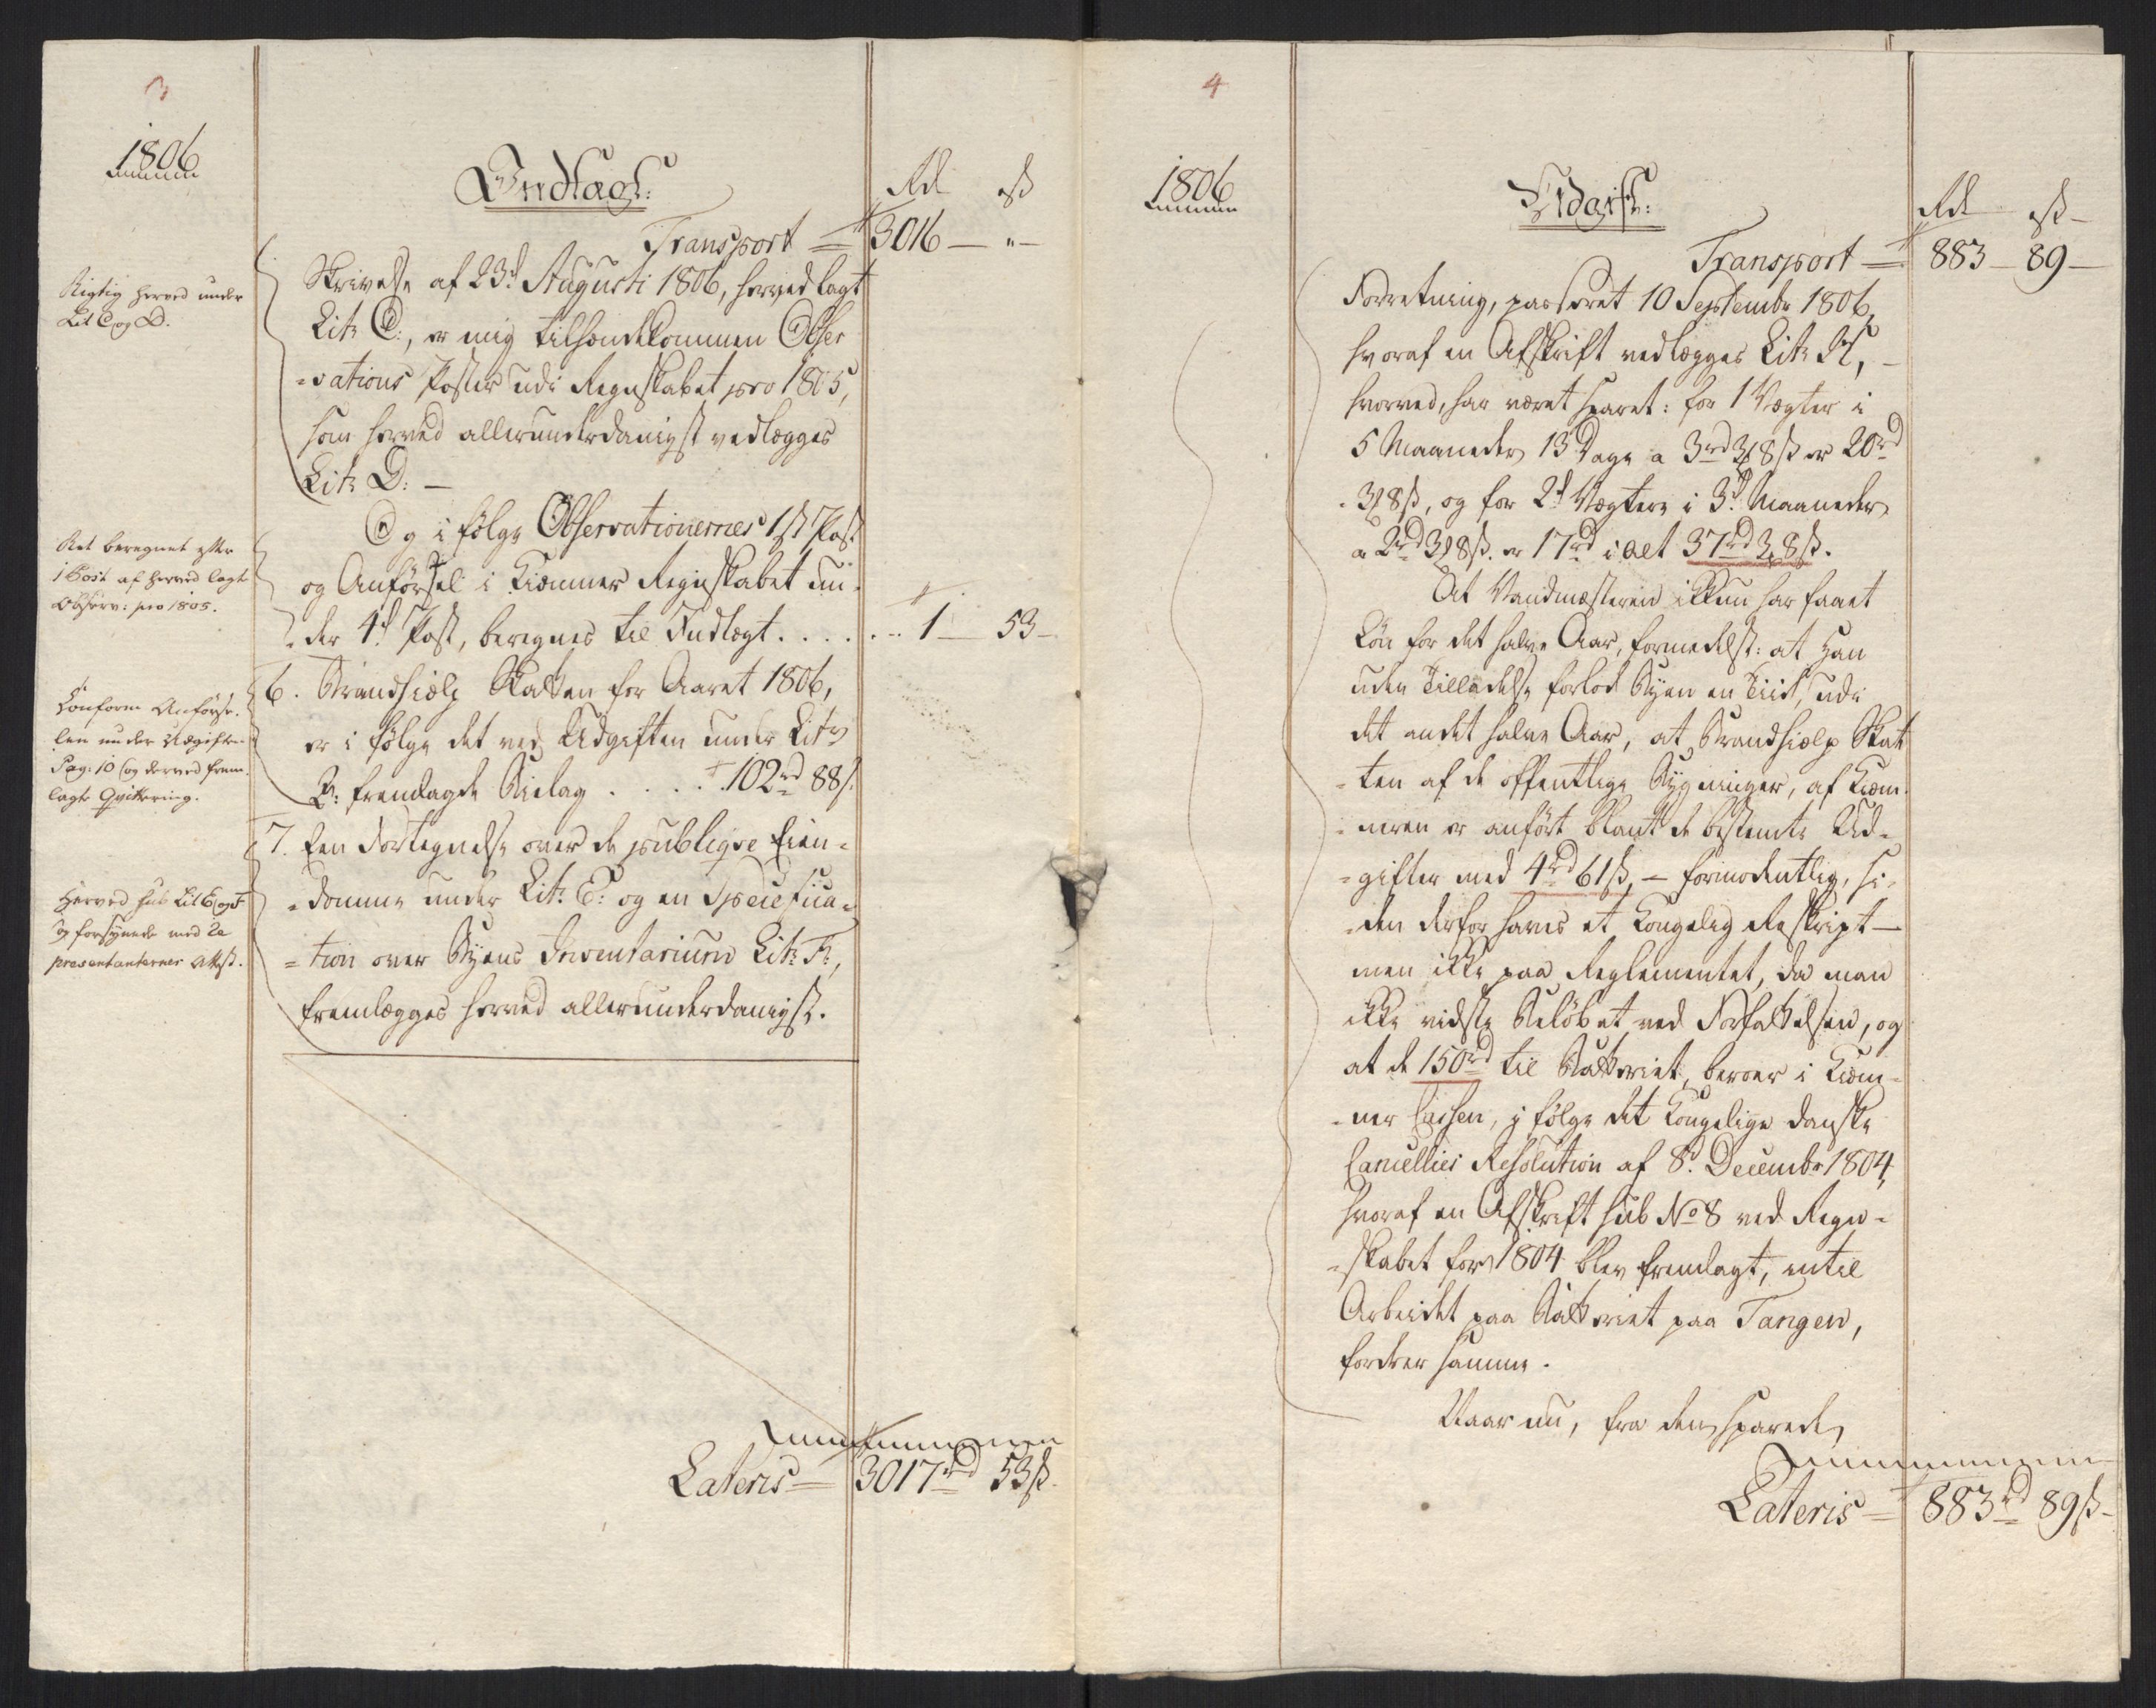 3
1806
Indtægt:
Rd ß
Transport = 3016 — " —
Rigtig herved under
Lit C og D.
Skrivelse af 23d Augusti 1806, herved lagt
Litr C:, er mig tilhændekommen Obser
-vations Poster udi Regnskabet pro 1805,
som herved allerunderdanigst vedlægges
Litr D: —
Ret beregnet efter
1 Post af herved lagte
Observ: pro 1805.
Og i følge Observationernes 1ste Post
og Anførsel i Kiemner Regnskabet un-
-der 4d Post, beregnes til Indtægt . . . . . . 1 — 53 —
Conform Anførse-
len under Udgiften
Pag: 10 og derved frem-
lagte Qvittering.
6. Brandhielp Skatten for Aaret 1806,
er i følge det ved Udgiften under Litr
fremlagde Bielag . . . . . 102rd 88ß.
Herved sub Lit E og F
og forsynede med Re
presentanternes Attest.
7. Een Fortegnelse over de publiqve Eien-
-domme under Lit: E: og en Specifica-
-tion over Byens Inventarium Litr F:,
fremlægges herved allerunderdanigst.
Lateris = 3017rd 53ß.
4
1806
Udgift:
Rd ß
Transport = 883 — 89 —
Forretning, passeret 10 Septembr 1806,
hvoraf en Afskrift vedlægges Litr H, —
hvorved, har været sparet: for 1 Vægter i
5 Maaneder 13 Dage a 3rd 3 8ß er 20rd
3 8ß, og for 2d Vægtere i 3d Maaneder
a 2rd 3 8ß. er 17rd i alt 37rd 3 8ß.
At Vandmesteren ikkun har faaet
Løn for det halve Aar, formedelst: at han
uden Tilladelse forlod Byen en Tiid, udi
det andet halve Aar, at Brandhielp Skat
-ten af de offentlige Bygninger, af Kiem-
-neren er anført blant de bestemte Ud-
-gifter med 4rd 61ß, — formodentlig, si-
-den derfor haves et Kongelig Reskript —
men ikke paa Reglementet, da man
ikke vidste Beløbet ved Forfattelsen, og
at de 150rd til Batteriet, beroer i Kiem-
-ner Cassen, i følge det Kongelige danske
Cancellies Resolution af 8d Decembr 1804,
hvoraf en Afskrift sub No 8 ved Regn-
-skabet for 1804 blev fremlagt, intil
Arbeidet paa Batteriet paa Tangen,
fordrer samme.
Naar nu, fra den sparede
Lateris = 883rd 89ß —